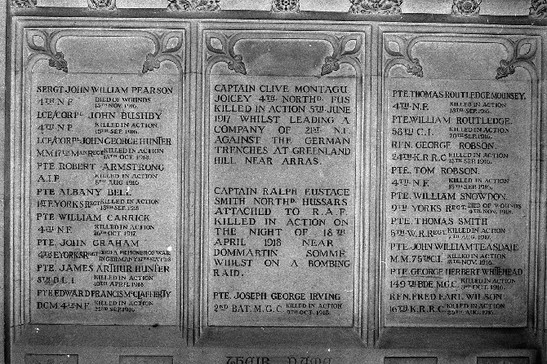 SERGT. JOHN WILLIAM PEARSON
4TH N.F. DIED OF WOUNDS
15TH NOV. 1916.
LCE/CORPL. JOHN BUSHBY
4TH N.F. KILLED IN ACTION
15TH SEP. 1916.
LCE/CORPL JOHN GEORGE HUNTER
KILLED IN ACTION
OCT. 1918.
PTE ROBERT ARMSTRONG
A.I.F. KILLED IN ACTION
AUG 1916
PTE ALBANY BELL
1ST E.YORKS REGT KILLED IN ACTION
PTE WILLIAM CARRICK
4TH N.F. KILLED IN ACTION
OCT 1917
PTE. JOHN GRAHAM
4TH E.YORKS REGT DIED A PRISONER OF WAR
IN GERMANY
PTE. JAMES ARTHUR HUNTER
D.L.I. KILLED IN ACTION
APRIL 1918
PTE EDWARD FRANCIS MCCLAFFERTY
DCM. 4TH N.F. KILLED IN ACTION
SEP. 1916.
CAPTAIN CLIVE MONTAGU
JOICEY 4TH NORTHD. FUS
KILLED IN ACTION 5TH JUNE
1917 WHILST LEADING A
COMPANY OF 21ST N.F.
AGAINST THE GERMAN
TRENCHES AT GREENLAND
HILL NEAR ARRAS.
CAPTAIN RALPH EUSTACE
SMITH NORTHD. HUSSARS
ATTACHED TO R.A.F.
KILLED IN ACTION ON
THE NIGHT OF 18TH
APRIL 1918 NEAR
DOMMARTIN SOMME
WHILST ON A BOMBING
RAID.
PTE. JOSEPH GEORGE IRVING
2ND BAT. M.G.C. KILLED IN ACTION
OCT. 1918.
PTE. THOMAS ROUTLEDGE MOUNSEY.
4TH N.F. KILLED IN ACTION
15TH SEP. 1916.
PTE. WILLIAM ROUTLEDGE.
KILLED IN ACTION
SEP. 1917.
RFN. GEORGE ROBSON.
24TH K.R.R.C KILLED IN ACTION
SEP. 1916.
PTE. TOM ROBSON.
4TH N.F. KILLED IN ACTION
SEP. 1916.
PTE. WILLIAM SNOWDON.
9TH YORKS REGT. DIED OF WOUNDS
NOV. 1918.
PTE. THOMAS SMITH
W.R.REGT KILLED IN ACTION
AUG. 1917.
PTE. JOHN WILLIAM TEASDALE
KILLED IN ACTION
NOV. 1916.
PTE. GEORGE HERBERT WHITEHEAD
149TH BDE. M.G.C. KILLED IN ACTION
OCT. 1916
RFN. FRED EARL WILSON
16TH K.R.R.C. KILLED IN ACTION
AUG. 1916.
THEIR NAME